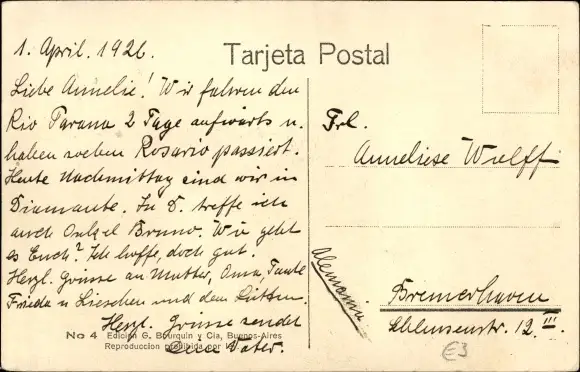 1. April. 1926.
Tarjeta Postal
Liebe Annelie! Wir fahren den
Rio Parana 2 Tage aufwärts u.
haben soeben Rosario passiert.
Heute Nachmittag sind wir in
Diamante. In D. treffe ich
auch Onkel Bruno. Wie geht
es Euch? Ich hoffe, doch gut.
Herzl. Grüsse an Mutter, Oma, Tante
Frieda u Lieschen und den Lütten.
Herzl. Grüsse sendet
Euer Vater.
No 4 Edición G. Bourquin y Cia, Buenos-Aires
Reproduccion prohibida por
Frl.
Anneliese Wulff
Alemania
Bremerhaven
Schleusenstr. 12. III.
E3